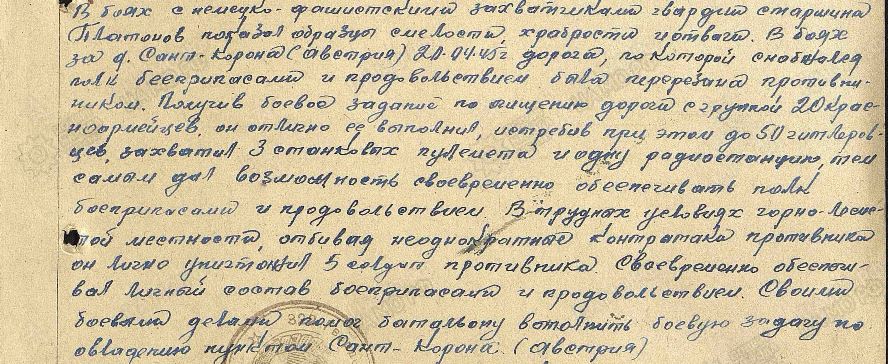 В боях с немецко-фашистскими захватчиками гвардии старшина
Платонов показал образцы смелости, храбрости и отваги. В боях
за д. Сант-Корона (Австрия) 20.04.45г дорога, по которой снабжался
полк боеприпасами и продовольствием была перерезана противни-
ником. Получив боевое задание по очищению дороги с группой 20 крас-
ноармейцев, он отлично ее выполнил, истребив при этом до 50 гитлеров-
цев, захватил 3 станковых пулемета и одну радиостанцию, тем
самым дал возможность своевременно обеспечивать полк
боеприпасами и продовольствием. В трудных условиях горно-лесис-
той местности, отбивая неоднократные контратаки противника
он лично уничтожил 5 солдат противника. Своевременно обеспечи-
вал личный состав боеприпасами и продовольствием. Своими
боевыми делами помог батальону выполнить боевую задачу по
овладению пунктом Сант-Корона (Австрия)